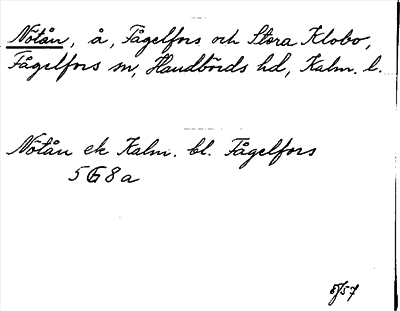 Nötån, å, Fågelfors och Stora Klobo,
Fågelfors sn, Handbörds hd, Kalm. l.
Nötån ek Kalm. bl. Fågelfors
5G8a